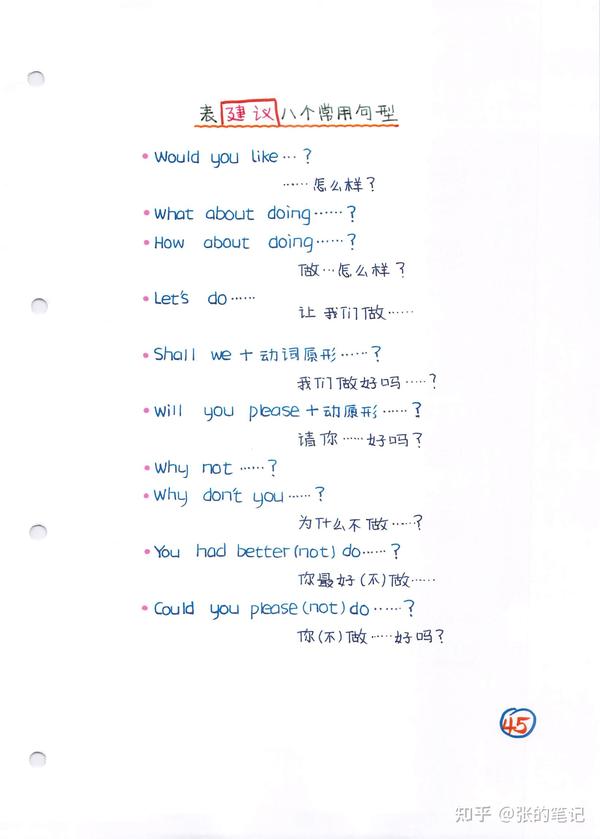 表建议八个常用句型
• Would you like …?
……怎么样?
• What about doing ……?
• How about doing ……?
做…怎么样?
• Let's do ……
让我们做……
• Shall we + 动词原形……?
我们做好吗……?
• Will you please + 动原形……?
请你……好吗?
• Why not ……?
• Why don't you ……?
为什么不做……?
• You had better(not) do……?
你最好(不)做……
• Could you please(not) do ……?
你(不)做……好吗?
45
知乎 @张的笔记